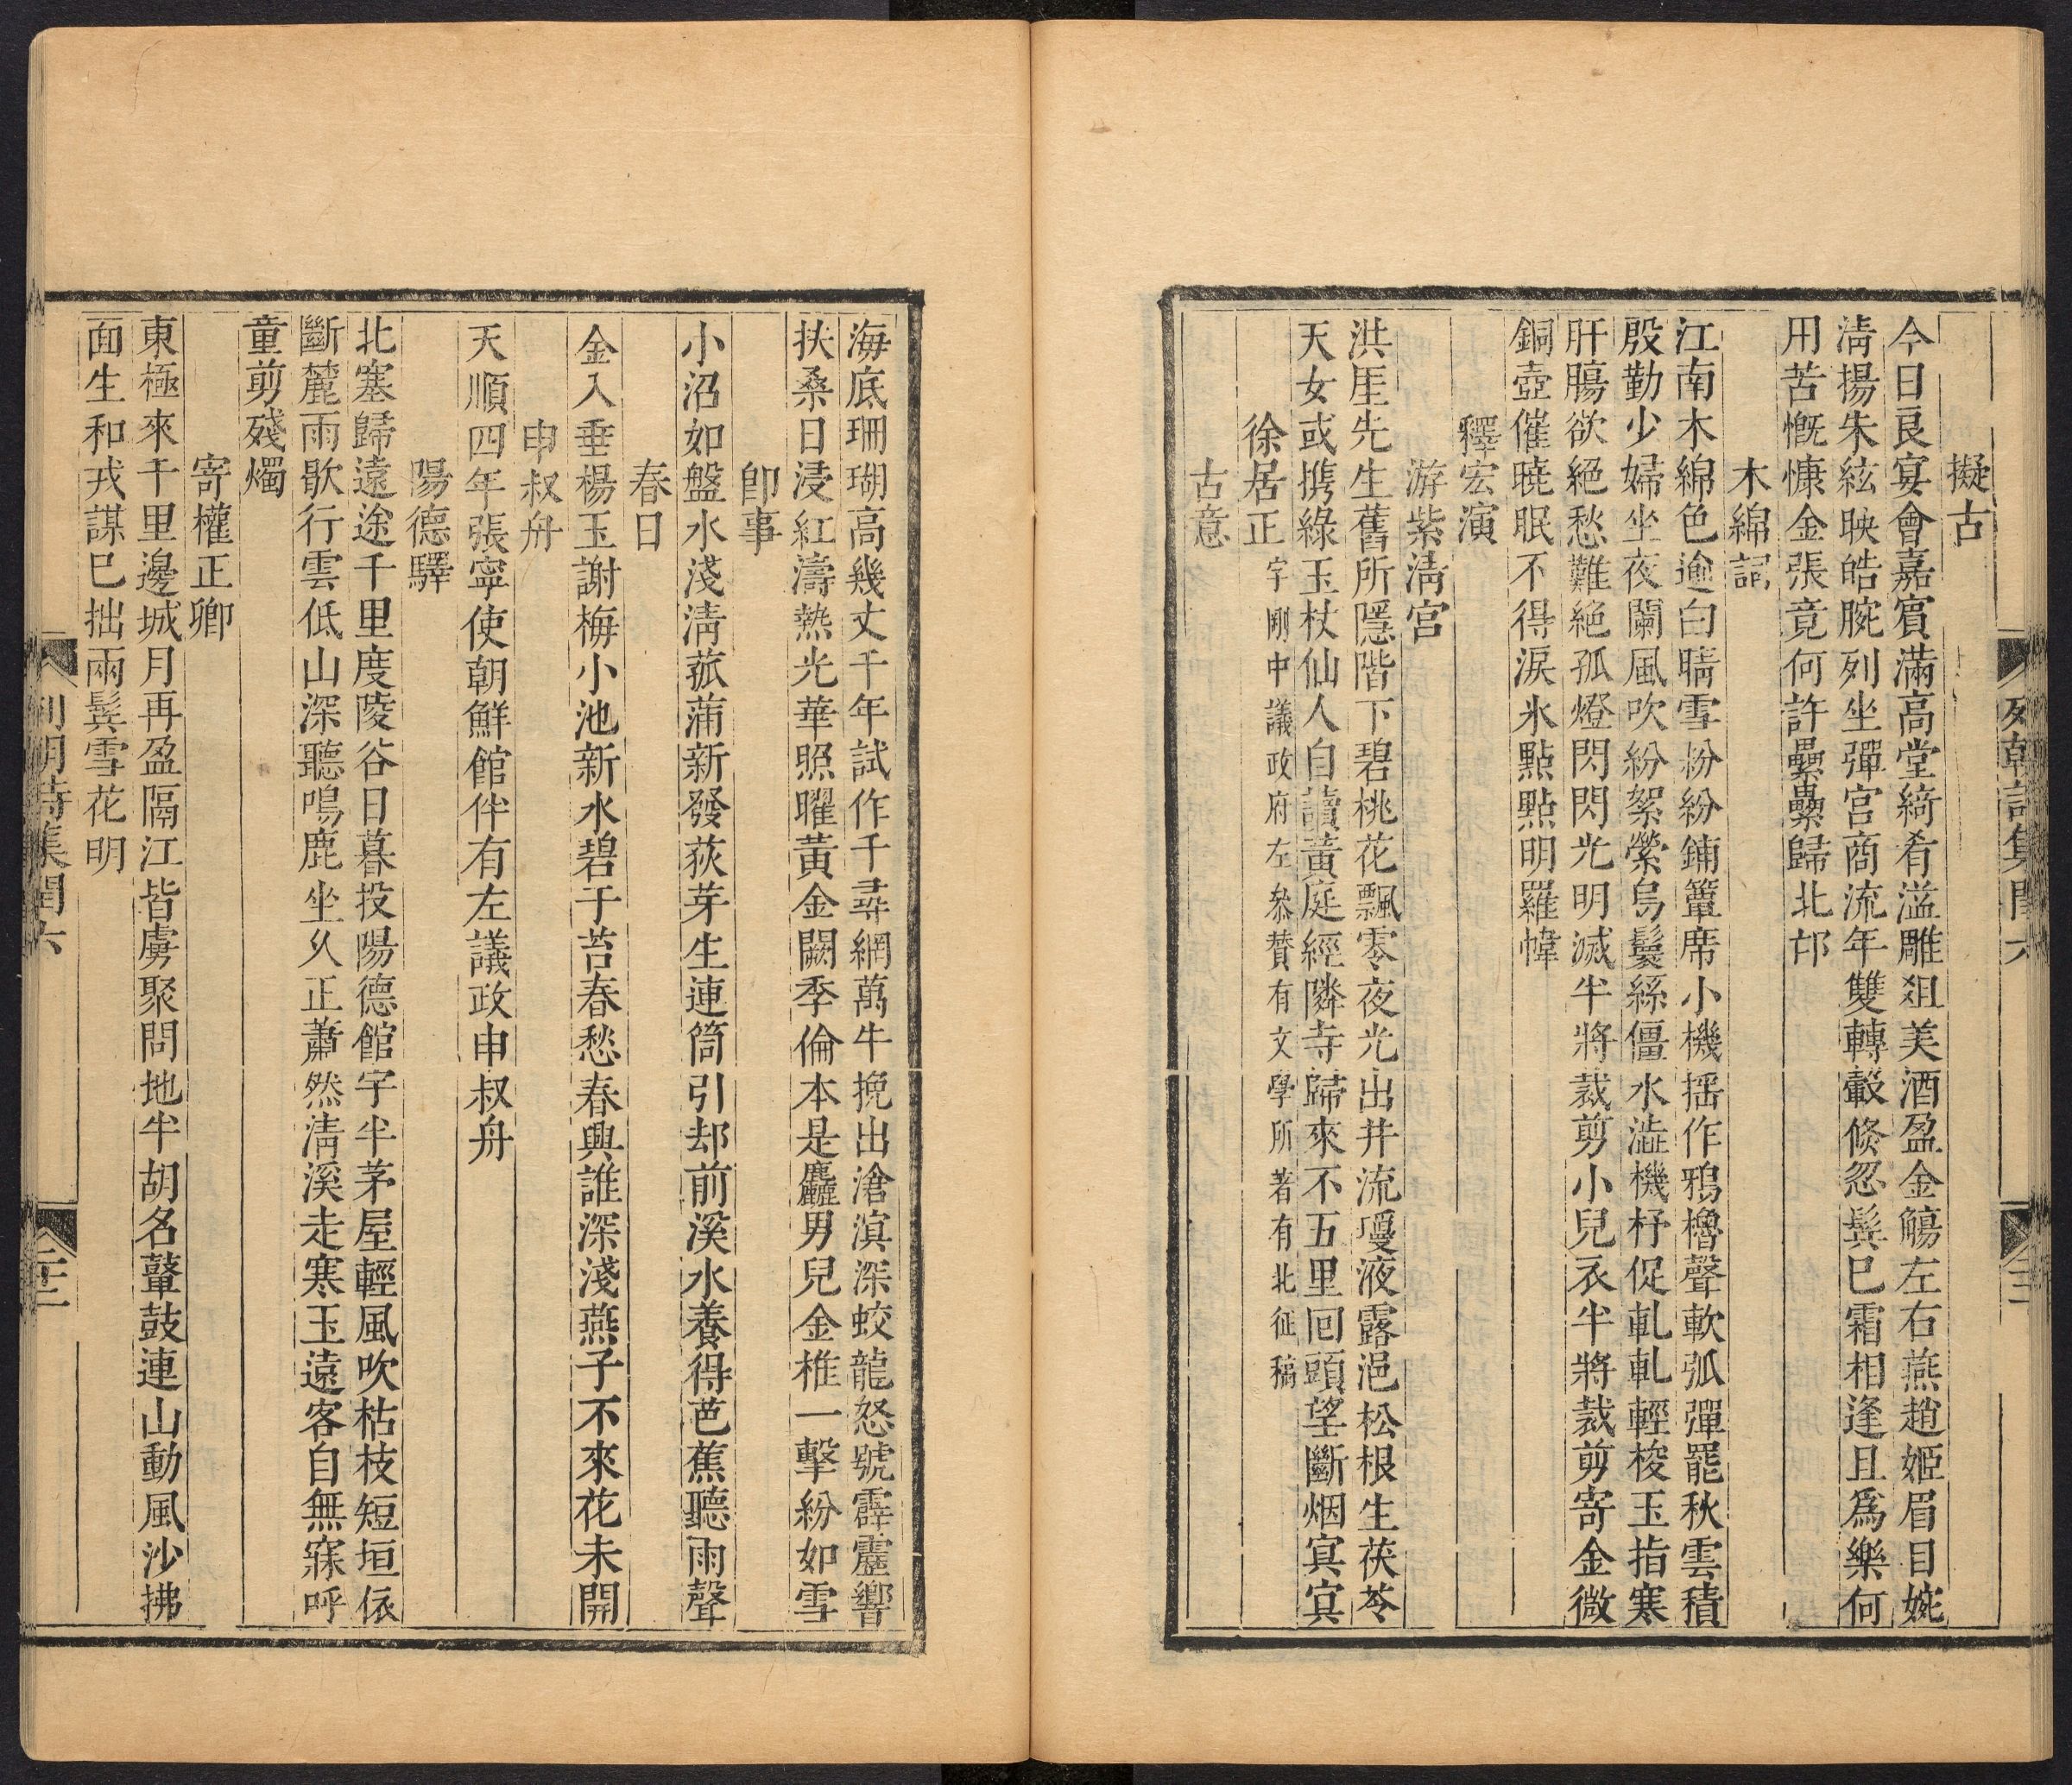 擬古
今日良宴會嘉賓滿高堂綺肴溢雕俎美酒盈金觴左右燕趙姬眉目婉
淸揚朱絃映皓腕列坐彈宮商流年雙轉轂倐忽鬂已霜相逢且爲樂何
用苦慨慷金張竟何許纍纍歸北邙
木綿詞
江南木綿色逾白晴雪紛紛鋪簟席小機揺作鴉櫓聲軟弧彈罷秋雲積
殷勤少婦坐夜闌風吹紛絮縈烏鬟絲僵水澁機杼促軋軋輕梭玉指寒
肝膓欲絕愁難絕孤燈閃閃光明滅半將裁剪小兒衣半將裁剪寄金微
銅壺催曉眠不得淚氷點點明羅幃
釋宏演
游紫淸宮
洪厓先生舊所隱階下碧桃花飄零夜光出井流瓊液露浥松根生茯苓
天女或攜綠玉杖仙人自讀黃庭經隣寺歸來不五里回頭望斷烟冥冥
徐居正字剛中議政府左叅贊有文學所著有北征稿
古意
海底珊瑚高幾丈千年試作千尋網萬牛挽出滄溟深蛟龍怒號霹靂響
扶桑日浸紅濤熱光華照曜黃金闕季倫本是麤男兒金椎一擊紛如雪
卽事
小沼如盤水淺淸菰蒲新發荻芽生連筒引却前溪水養得芭蕉聽雨聲
春日
金入垂楊玉謝梅小池新水碧于苔春愁春興誰深淺燕子不來花未開
申叔舟
天順四年張寧使朝鮮館伴有左議政申叔舟
陽德驛
北塞歸遠途千里度陵谷日暮投陽德館宇半茅屋輕風吹枯枝短垣依
斷麓雨歇行雲低山深聽鳴鹿坐久正蕭然淸溪走寒玉遠客自無寐呼
童剪殘燭
寄權正卿
東極來千里邊城月再盈隔江皆虜聚問地半胡名鼙鼓連山動風沙拂
面生和戎謀已拙兩鬂雪花明
列朝詩集閏六